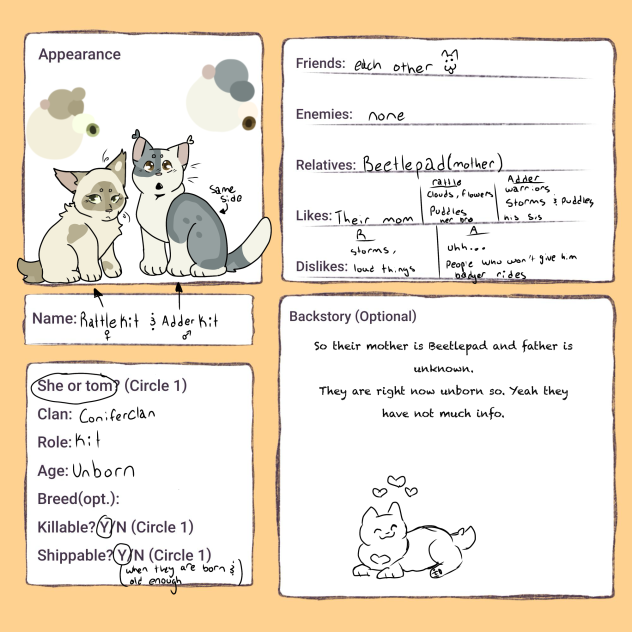 Appearance
Same
side
Name: Rattlekit & Adderkit
♀ ♂
She or tom? (Circle 1)
Clan: Coniferclan
Role: Kit
Age: Unborn
Breed(opt.):
Killable? Y/N (Circle 1)
Shippable? Y/N (Circle 1)
(when they are born &
old enough)
Friends: each other
Enemies: none
Relatives: Beetlepad(mother)
Likes: Their mom
rattle
Clouds, flowers
Puddles
her bro
Adder
warriors
Storms & Puddles
his sis
Dislikes:
R
storms,
loud things
A
uhh...
People who won't give him
badger rides
Backstory (Optional)
So their mother is Beetlepad and father is
unknown.
They are right now unborn so. Yeah they
have not much info.